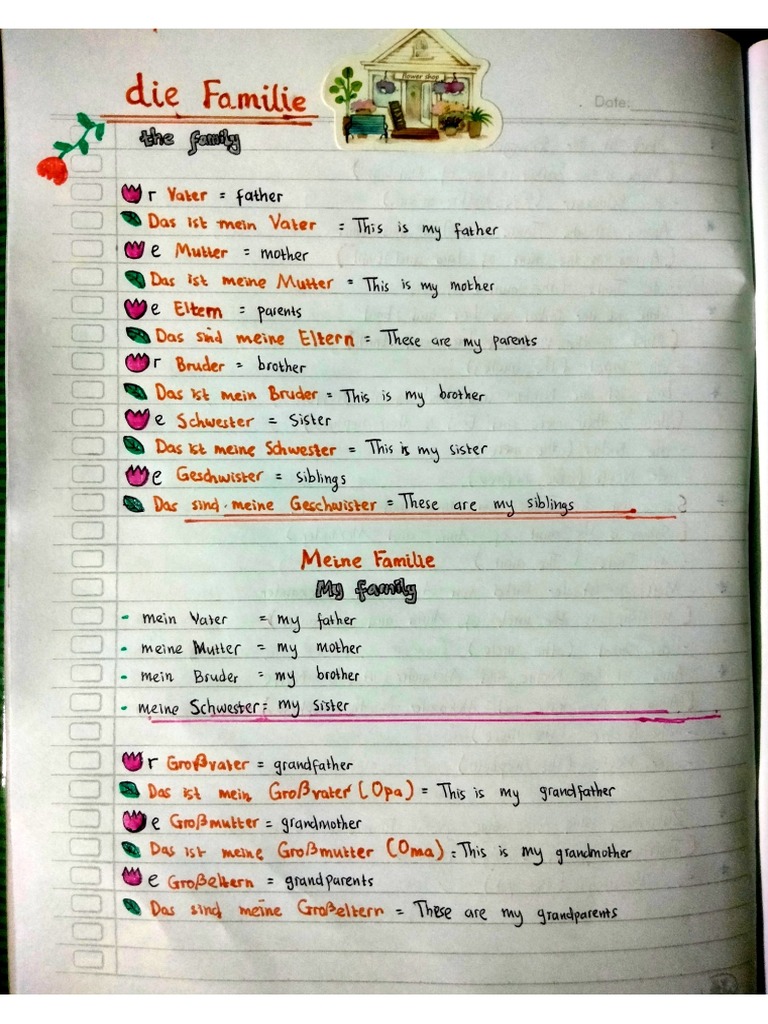 flower shop
die Familie
Date:
the family
r Vater = father
Das ist mein Vater = This is my father
e Mutter = mother
Das ist meine Mutter = This is my mother
e Eltern = parents
Das sind meine Eltern = These are my parents
r Bruder = brother
Das ist mein Bruder = This is my brother
e Schwester = Sister
Das ist meine Schwester = This is my sister
e Geschwister = siblings
Das sind meine Geschwister = These are my siblings
Meine Familie
My family
- mein Vater = my father
- meine Mutter = my mother
- mein Bruder = my brother
- meine Schwester = my sister
r Großvater = grandfather
Das ist mein Großvater (Opa) = This is my grandfather
e Großmutter = grandmother
Das ist meine Großmutter (Oma) = This is my grandmother
e Großeltern = grandparents
Das sind meine Großeltern = These are my grandparents